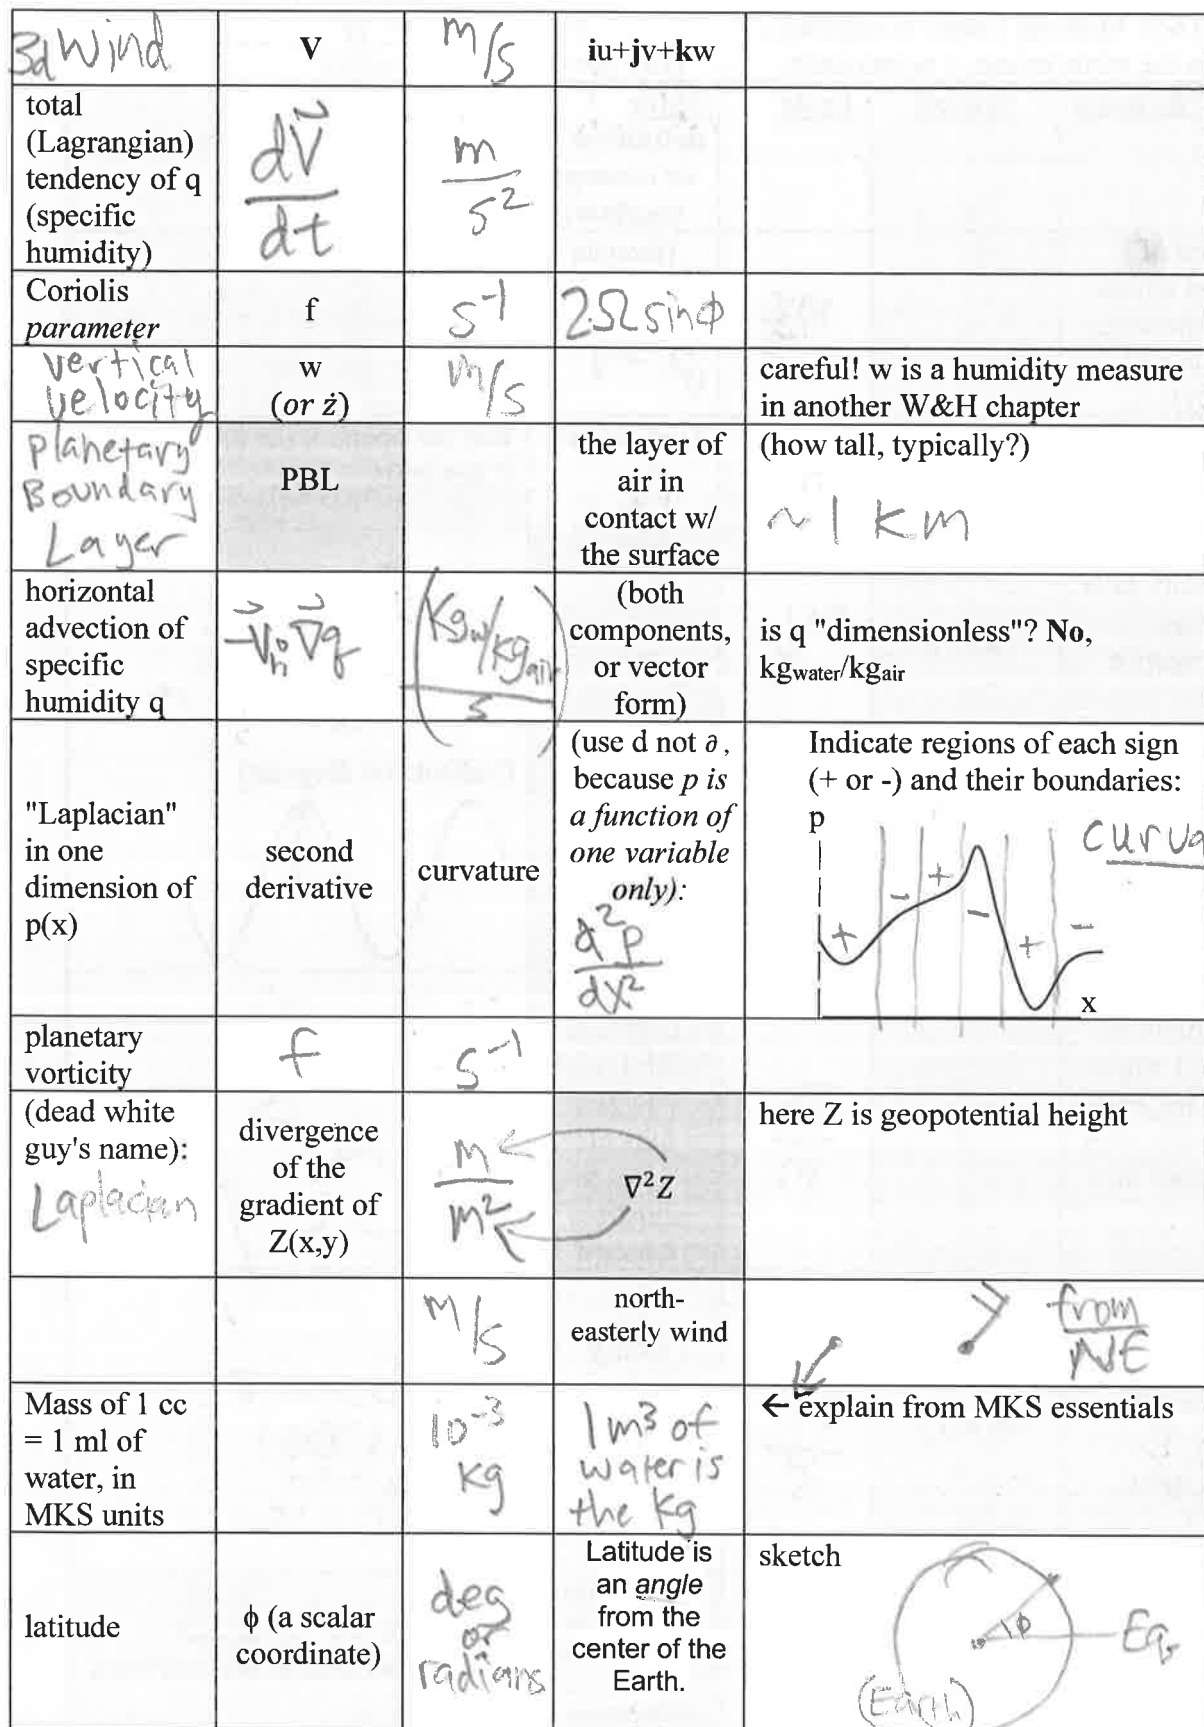 3d Wind
V
m/s
iu+jv+kw
total
(Lagrangian)
tendency of q
(specific
humidity)
dV⃗
dt
m
s²
Coriolis
parameter
f
s⁻¹
2Ωsinϕ
vertical
velocity
w
(or ż)
m/s
careful! w is a humidity measure
in another W&H chapter
Planetary
Boundary
Layer
PBL
the layer of
air in
contact w/
the surface
(how tall, typically?)
~1 km
horizontal
advection of
specific
humidity q
-V⃗h∘∇⃗q
(kgw/kgair)
s
(both
components,
or vector
form)
is q "dimensionless"? No,
kgwater/kgair
"Laplacian"
in one
dimension of
p(x)
second
derivative
curvature
(use d not ∂,
because p is
a function of
one variable
only):
d²p
dx²
Indicate regions of each sign
(+ or -) and their boundaries:
p
curva
+ - + - + -
x
planetary
vorticity
f
s⁻¹
(dead white
guy's name):
Laplacian
divergence
of the
gradient of
Z(x,y)
m
m²
∇²Z
here Z is geopotential height
m/s
north-
easterly wind
from
NE
Mass of 1 cc
= 1 ml of
water, in
MKS units
10⁻³
kg
1m³ of
water is
the kg
← explain from MKS essentials
latitude
ϕ (a scalar
coordinate)
deg
or
radians
Latitude is
an angle
from the
center of the
Earth.
sketch
ϕ
Eq
(Earth)